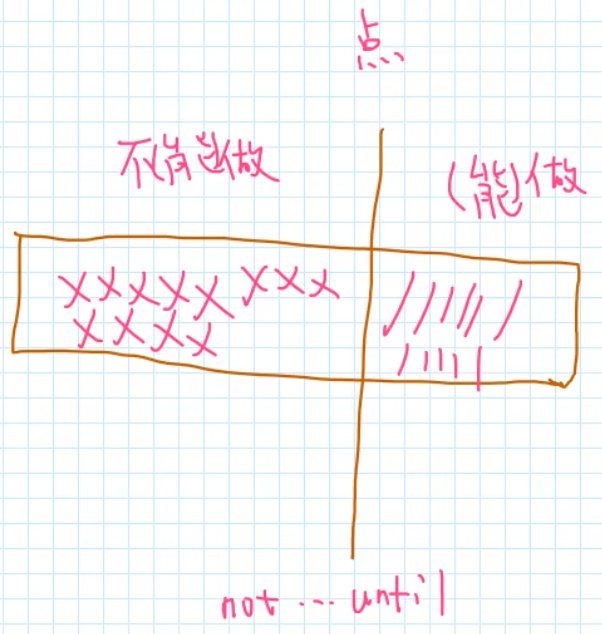 点
不能做
(能)做
not ... until